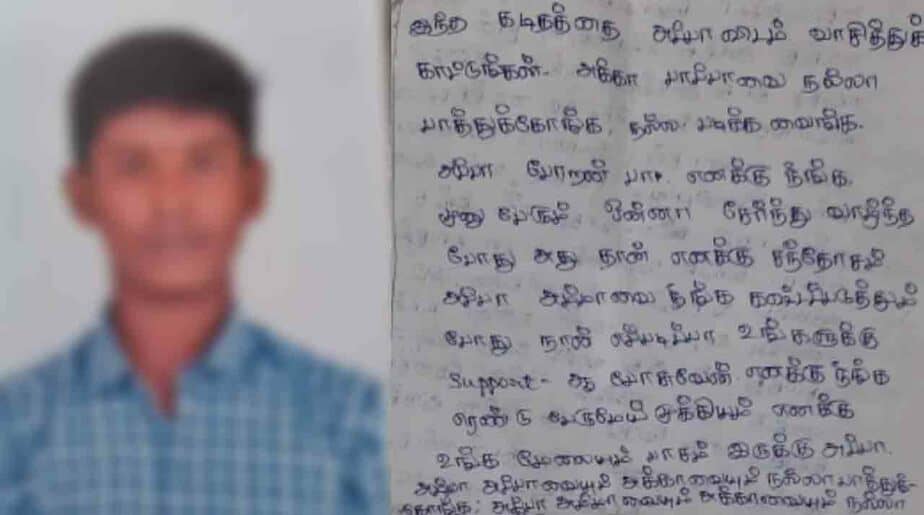 இந்த கடிதத்தை அம்மாவிடம் வாசித்துக்
காட்டுங்கள். அக்கா பாப்பாவை நல்லா
பாத்துக்கோங்க, நல்ல படிக்க வைங்க.
அப்பா போறன் பா. எனக்கு நீங்க
மூனு பேரும் ஒன்னா சேர்ந்து வாழ்ந்த
போது அது தான் எனக்கு சந்தோசம்
அப்பா அம்மாவை நீங்க கஷ்டப்படுத்தும்
போது நான் எப்படிப்பா உங்களுக்கு
Support-ஆ பேசுவேன் எனக்கு நீங்க
ரெண்டு பேருமே முக்கியம் எனக்கு
உங்க மேலையும் பாசம் இருக்கு அப்பா.
அப்பா அம்மாவையும் அக்காவையும் நல்லா பாத்துக்-
கோங்க; அப்பா அம்மாவையும் அக்காவையும் நல்லா